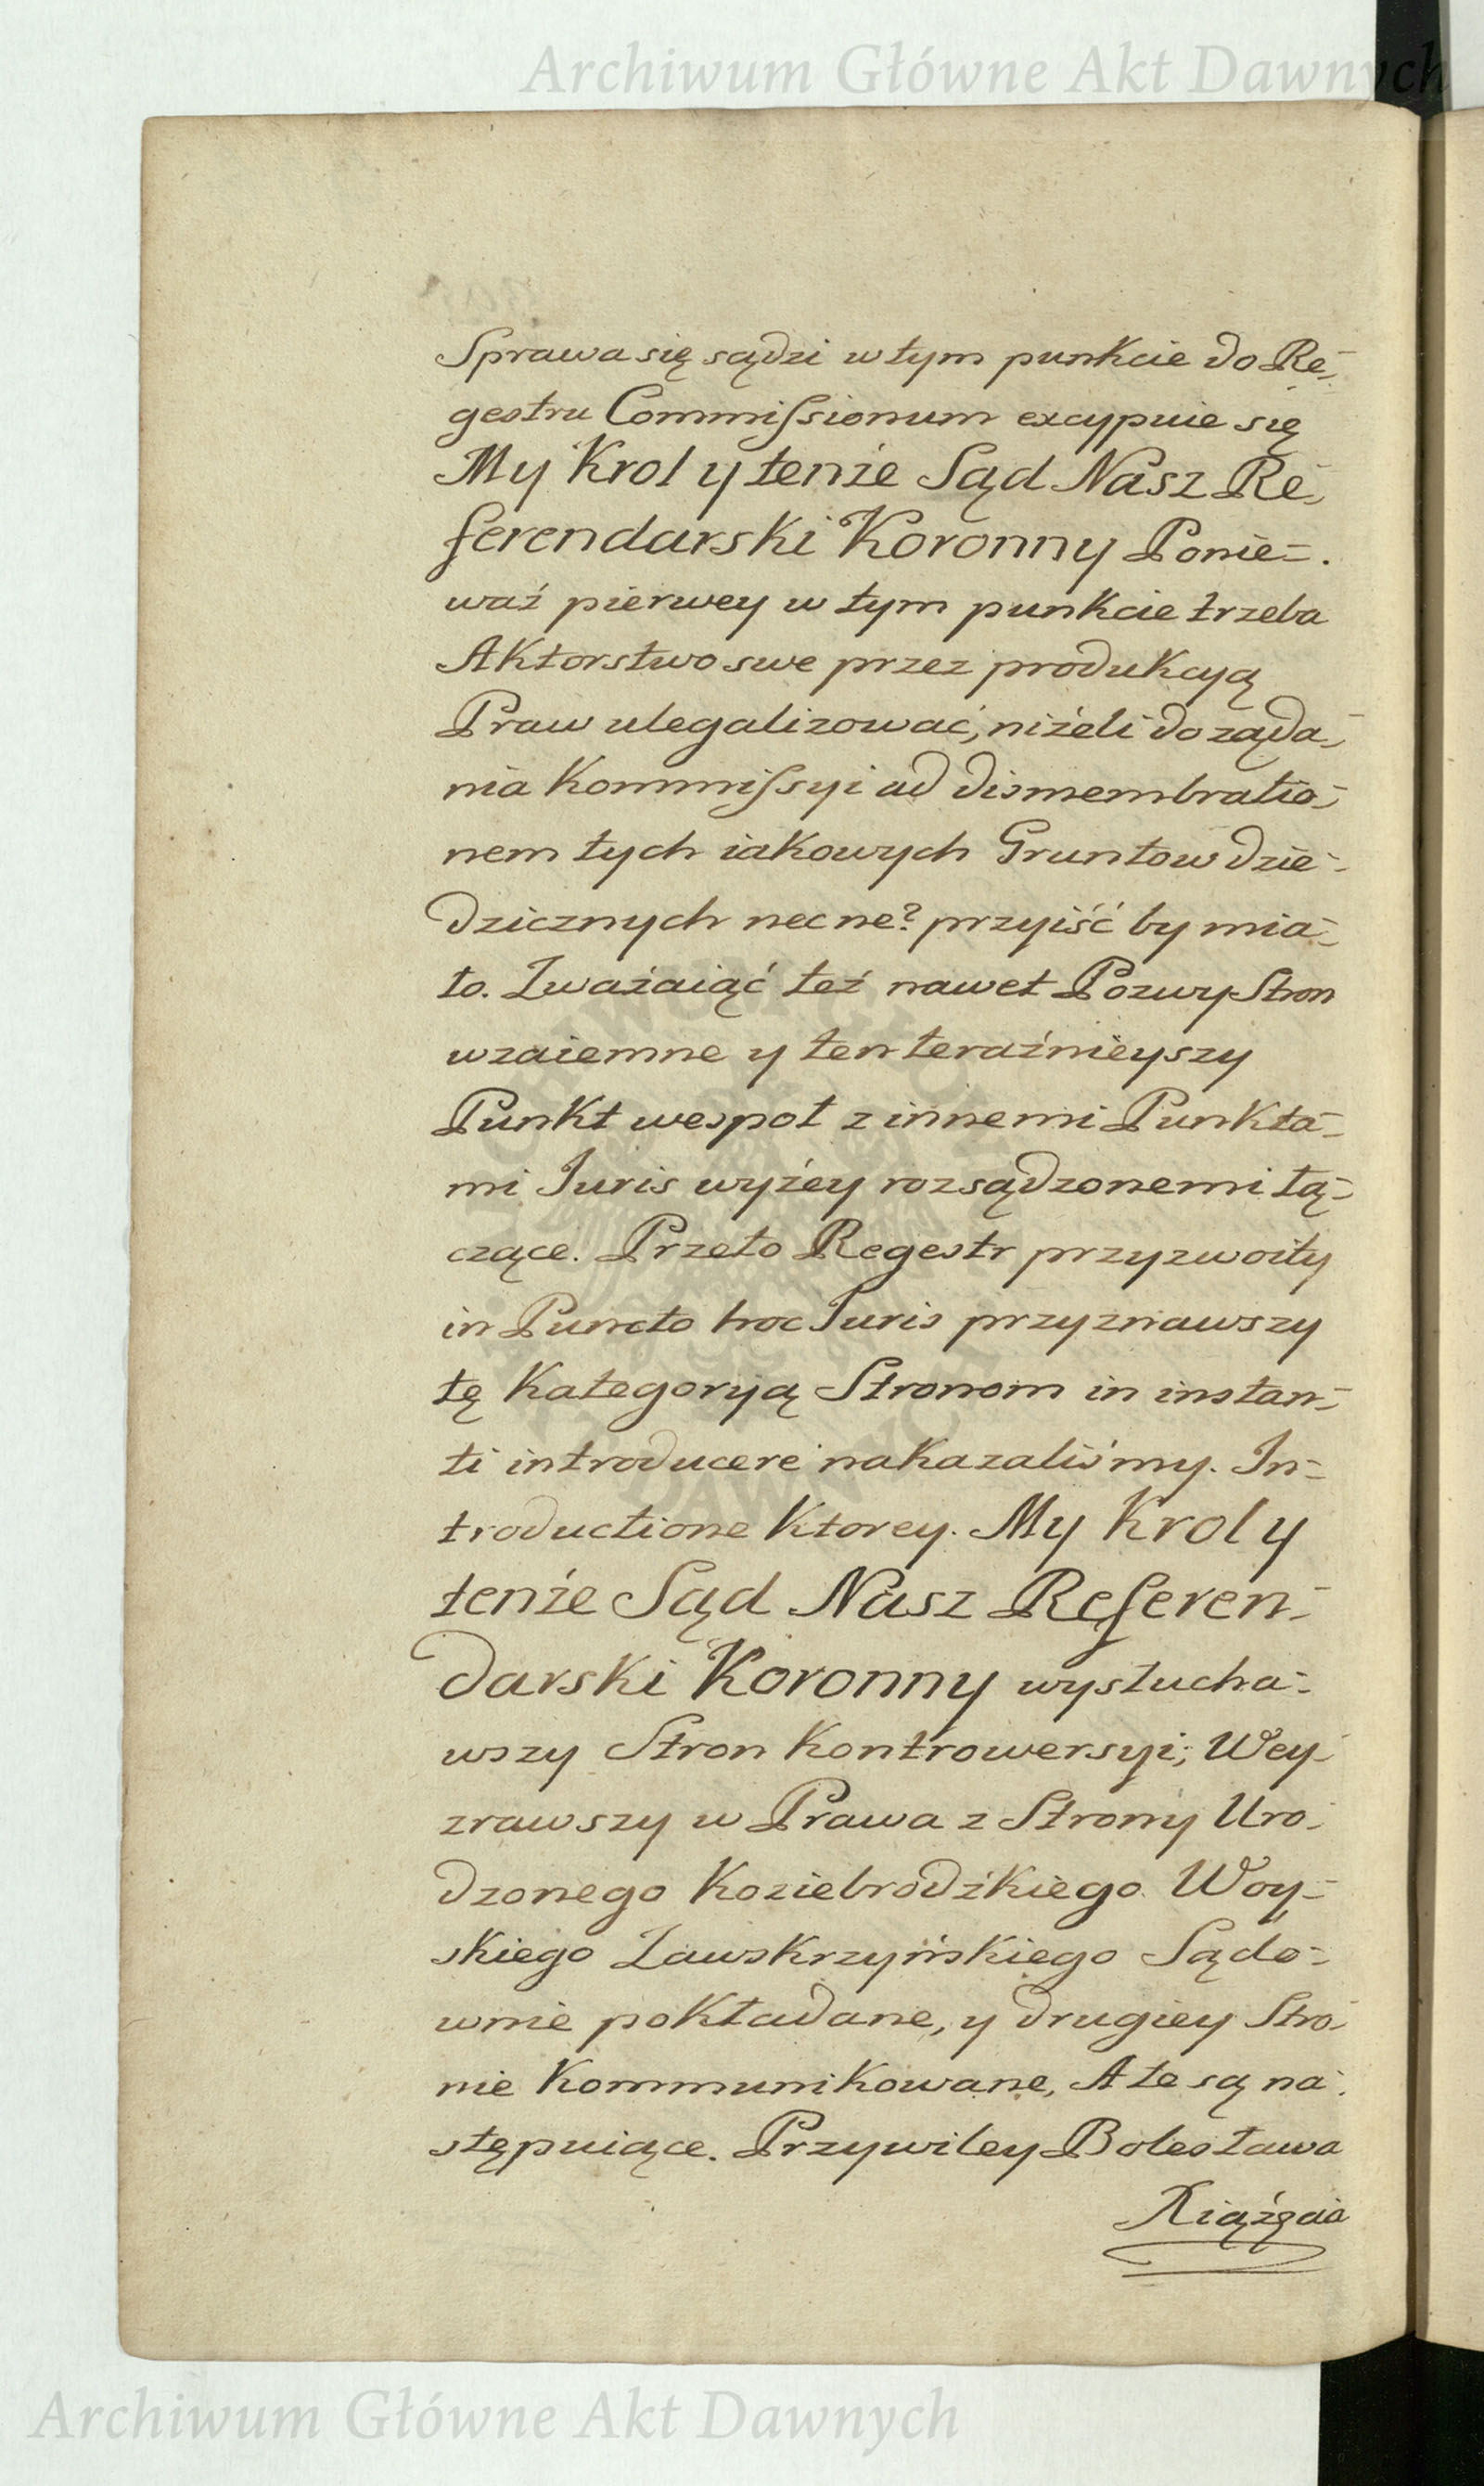 Archiwum Główne Akt Dawnych
Sprawa się sądzi w tym punkcie do Re-
gestru Commissionum excypuie się
My Krol y tenże Sąd Nasz Re-
ferendarski Koronny Ponie-
waż pierwey w tym punkcie trzeba
Aktorstwo swe przez produkcyą
Praw ulegalizować, niżeli do ząda-
nia Kommissyi ad dismembratio-
nem tych iakowych Gruntow dzie-
dzicznych nec ne? przyiść by mia-
ło. Zważaiąć też nawet Pozwy Stron
wzaiemne y ten teraźnieyszy
Punkt wespoł z innemi Punkta-
mi Juris wyżey rozsądzonemi łą-
czące. Przeto Regestr przyzwoity
in Puncto hoc Juris przyznawszy
tę Kategoryą Stronom in instan-
ti introducere nakazaliśmy. In-
troductione Ktorey. My Krol y
tenże Sąd Nasz Referen-
darski Koronny wysłucha-
wszy Stron Kontrowersyi; Wey-
zrawszy w Prawa z Strony Uro-
dzonego Koziebrodźkiego Woy-
skiego Zawskrzyńskiego Sądo-
wnie pokładane, y drugiey Stro-
nie Kommunikowane, A te są na-
stępuiące. Przywiley Bolesława
Xiążęcia
Archiwum Główne Akt Dawnych